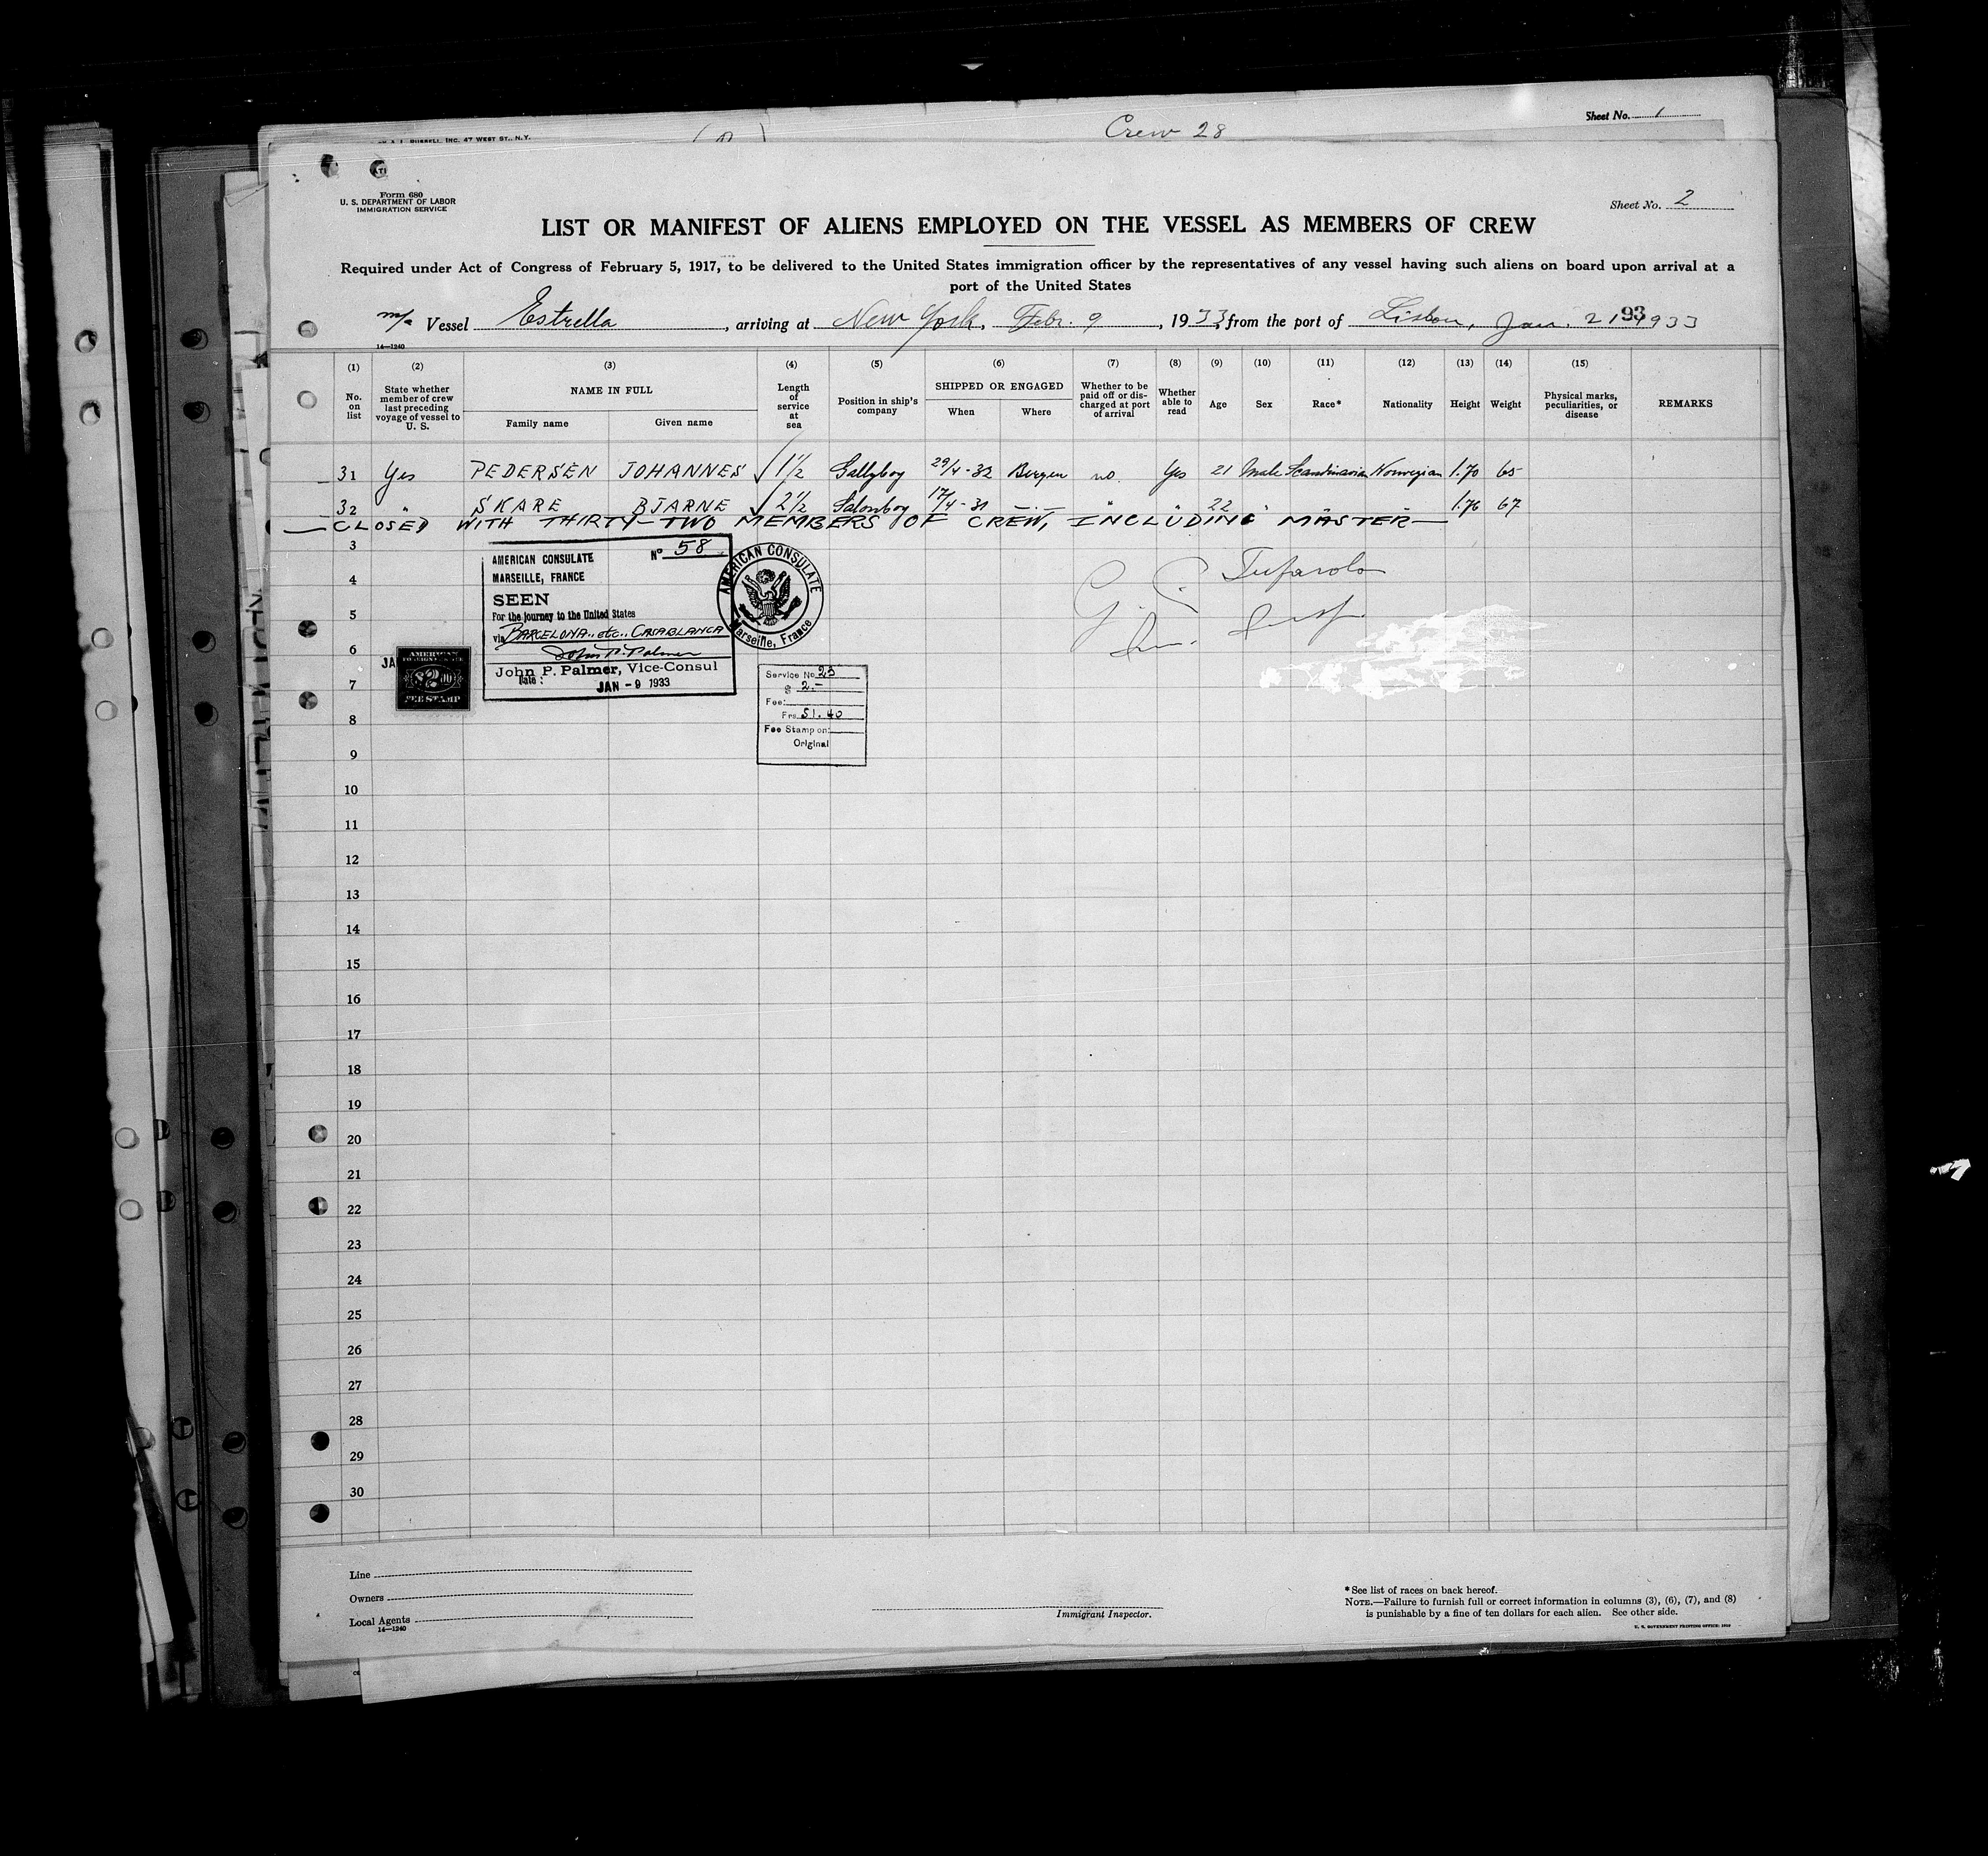 A. L. RUSSELL, INC. 47 WEST ST., N.Y.
Crew 28
Sheet No. 1
Form 680
U. S. DEPARTMENT OF LABOR
IMMIGRATION SERVICE
Sheet No. 2
LIST OR MANIFEST OF ALIENS EMPLOYED ON THE VESSEL AS MEMBERS OF CREW
Required under Act of Congress of February 5, 1917, to be delivered to the United States immigration officer by the representatives of any vessel having such aliens on board upon arrival at a
port of the United States
m/s Vessel Estrella, arriving at New York, Febr. 9, 1933, from the port of Lisbon, Jan. 21 1933
14—1240
(1) (2) (3) (4) (5) (6) (7) (8) (9) (10) (11) (12) (13) (14) (15)
No. on list
State whether member of crew last preceding voyage of vessel to U. S.
NAME IN FULL
Family name
Given name
Length of service at sea
Position in ship's company
SHIPPED OR ENGAGED
When
Where
Whether to be paid off or discharged at port of arrival
Whether able to read
Age
Sex
Race*
Nationality
Height
Weight
Physical marks, peculiarities, or disease
REMARKS
31 Yes PEDERSEN JOHANNES √ 1½ Gallyboy 29/4-32 Bergen no. Yes 21 Male Scandinavian Norwegian 1.70 65
32 " SKARE BJARNE √ 2½ Salonboy 17/4-31 —.— " " 22 " " " 1.76 67
— CLOSED WITH THIRTY-TWO MEMBERS OF CREW, INCLUDING MASTER —
3
4
5
6
7
8
9
10
11
12
13
14
15
16
17
18
19
20
21
22
23
24
25
26
27
28
29
30
AMERICAN CONSULATE
No 58
MARSEILLE, FRANCE
SEEN
For the journey to the United States
via BARCELONA, etc., CASABLANCA
John P. Palmer
John P. Palmer, Vice-Consul
Date: JAN - 9 1933
AMERICAN CONSULATE
Marseille, France
JA
AMERICAN
$2.00
FEE STAMP
Service No. 23
$ 2.-
Fee:
Frs. 51.40
Fee Stamp on
Original
Line
Owners
Local Agents
14—1240
Immigrant Inspector.
* See list of races on back hereof.
NOTE.—Failure to furnish full or correct information in columns (3), (6), (7), and (8)
is punishable by a fine of ten dollars for each alien. See other side.